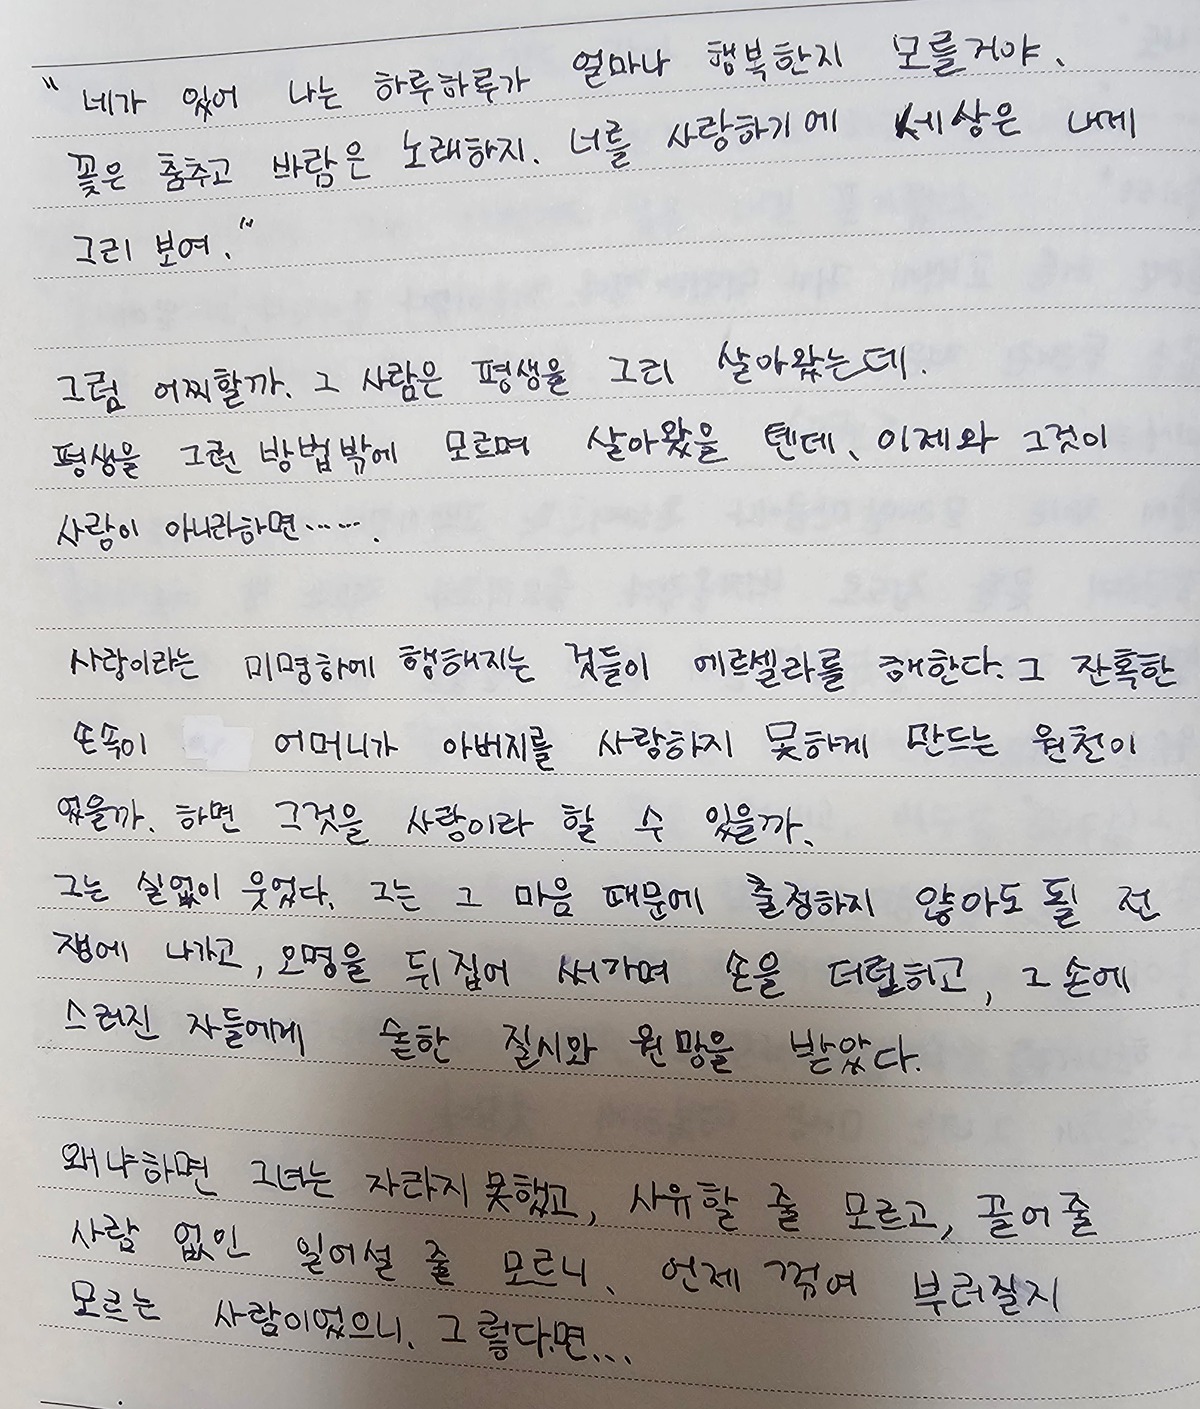 “ 네가 있어 나는 하루하루가 얼마나 행복한지 모를거야.
꽃은 춤추고 바람은 노래하지. 너를 사랑하기에 세상은 내게
그리 보여.”
그럼 어찌할까. 그 사람은 평생을 그리 살아왔는데.
평생을 그런 방법밖에 모르며 살아왔을 텐데, 이제와 그것이
사랑이 아니라하면…….
사랑이라는 미명하에 행해지는 것들이 에르셀라를 해한다. 그 잔혹한
손속이 어머니가 아버지를 사랑하지 못하게 만드는 원천이
었을까. 하면 그것을 사랑이라 할 수 있을까.
그는 실없이 웃었다. 그는 그 마음 때문에 출정하지 않아도 될 전
쟁에 나가고, 오명을 뒤집어 써가며 손을 더럽히고, 그 손에
스러진 자들에게 숱한 질시와 원망을 받았다.
왜냐하면 그녀는 자라지 못했고, 사유할 줄 모르고, 끌어줄
사람 없인 일어설 줄 모르니, 언제 꺾여 부러질지
모르는 사람이었으니. 그렇다면...